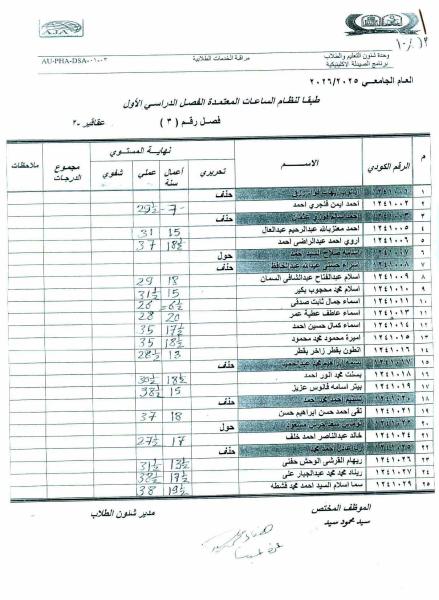 AJA
AU-PHA-DSA-٠١-٠٠٣
مراقبة الخدمات الطلابية
وحدة شئون التعليم والطلاب
برنامج الصيدلة الاكلينيكية
العام الجامعي ٢٠٢٦/٢٠٢٥
طبقا لنظام الساعات المعتمدة الفصل الدراسي الأول
فصل رقم ( ٣ ) عقاقير -٢
م الرقم الكودي الاســـم تحريري نهاية المستوي أعمال سنة عملي شفوي مجموع الدرجات ملاحظات
١ ١٢٤١٠٠١ حذف
٢ ١٢٤١٠٠٢ احمد ايمن فتحري احمد 7 29½
٣ حذف
٤ ١٢٤١٠٠٥ احمد معتزبالله عبدالرحيم عبدالعال 15 31
٥ ١٢٤١٠٠٦ أروي احمد عبدالراضى احمد 18½ 37
٦ حول
٧ ١٢٤١٠٠٨ حذف
٨ ١٢٤١٠٠٩ اسلام عبدالفتاح عبدالشافى السمان 18 29
٩ ١٢٤١٠١٠ اسلام محمد محجوب بكير 15 31½
١٠ ١٢٤١٠١١ اسماء جمال ثابت صدقى 26
١١ ١٢٤١٠١٢ اسماء عاطف عطية عمر 20 28
١٢ ١٢٤١٠١٤ اسماء كمال حسين احمد 17½ 35
١٣ ١٢٤١٠١٥ اميرة محمود محمد محمود 18½ 35
١٤ ١٢٤١٠١٦ انطون بقطر زاخر بقطر 13 28½
١٥ ١٢٤١٠١٧ حذف
١٦ ١٢٤١٠١٨ بسنت محمد انور احمد 18½ 30½
١٧ ١٢٤١٠١٩ بيتر اسامه فانوس عزيز 15 38½
١٨ ١٢٤١٠٢٠ حذف
١٩ ١٢٤١٠٢١ تقى احمد حسن ابراهيم حسن 18 37
٢٠ حول
٢١ ١٢٤١٠٢٤ خالد عبدالناصر احمد خلف 17 27½
٢٢ حذف
٢٣ ١٢٤١٠٢٦ ريهام القرشى الوحش حفنى 13½ 31½
٢٤ ١٢٤١٠٢٧ ريناد محمد محمد عبدالجبار على 17½ 38½
٢٥ ١٢٤١٠٢٩ سما اسلام السيد احمد محمد فشطه 19½ 38
الموظف المختص
مدير شئون الطلاب
سيد محمود سيد